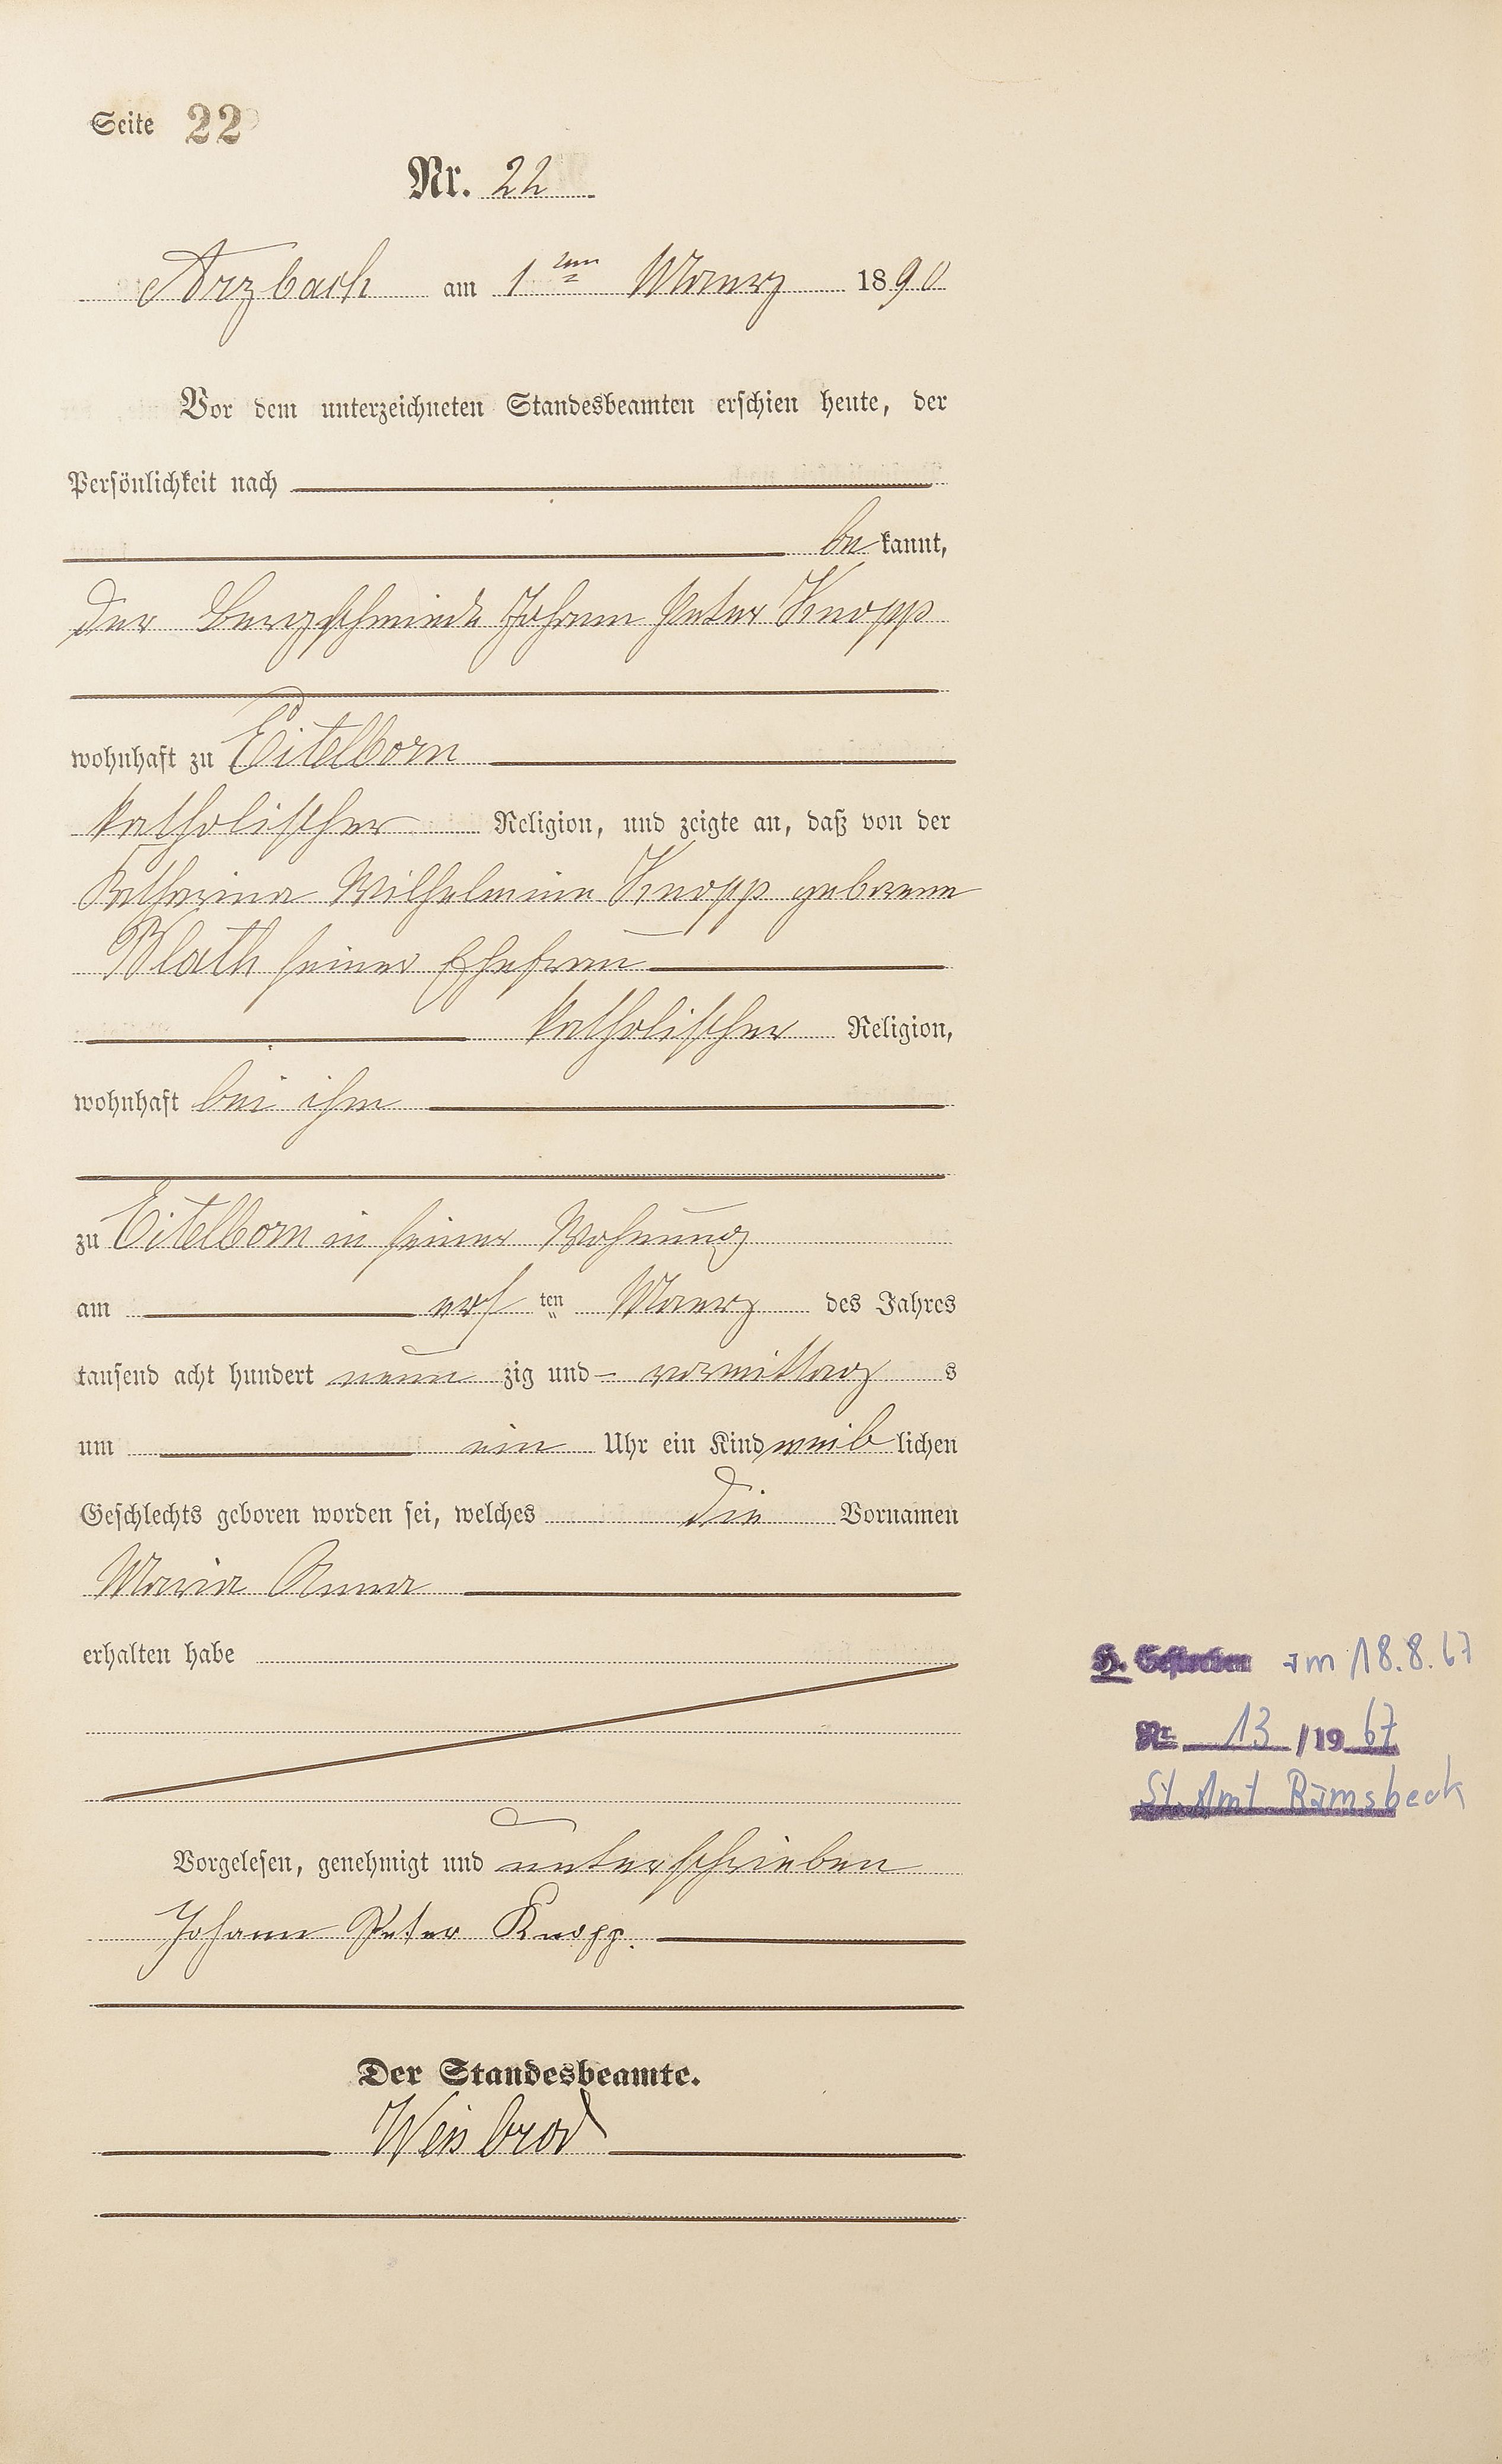 Seite 22
Nr. 22
Arzbach am 1ten Maerz 1890
Vor dem unterzeichneten Standesbeamten erschien heute, der
Persönlichkeit nach
bekannt,
der Bergschmiede Johann Peter Knopp
wohnhaft zu Eitelborn
katholischer Religion, und zeigte an, daß von der
Katharina Wilhelmine Knopp geborene
Blath seiner Ehefrau
katholischer Religion,
wohnhaft bei ihm
zu Eitelborn in seiner Wohnung
am ersten Maerz des Jahres
tausend acht hundert neunzig und – vormittags
um ein Uhr ein Kind weiblichen
Geschlechts geboren worden sei, welches die Vornamen
Maria Anna
erhalten habe
H. Gestorben am 18.8.67
Nr. 13/1967
St. Amt Ramsbeck
Vorgelesen, genehmigt und unterschrieben
Johann Peter Knopp.
Der Standesbeamte.
Weisbrod